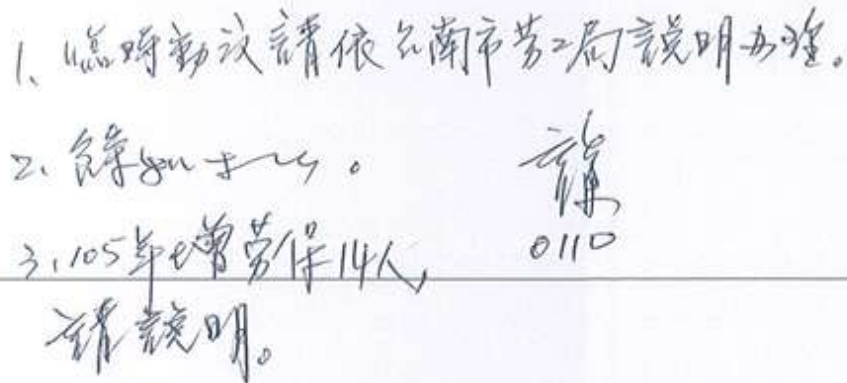 1、臨時動議請依台南市勞工局說明辦理。
2、餘如擬。
0110
3、105年增勞保14人,
請說明。